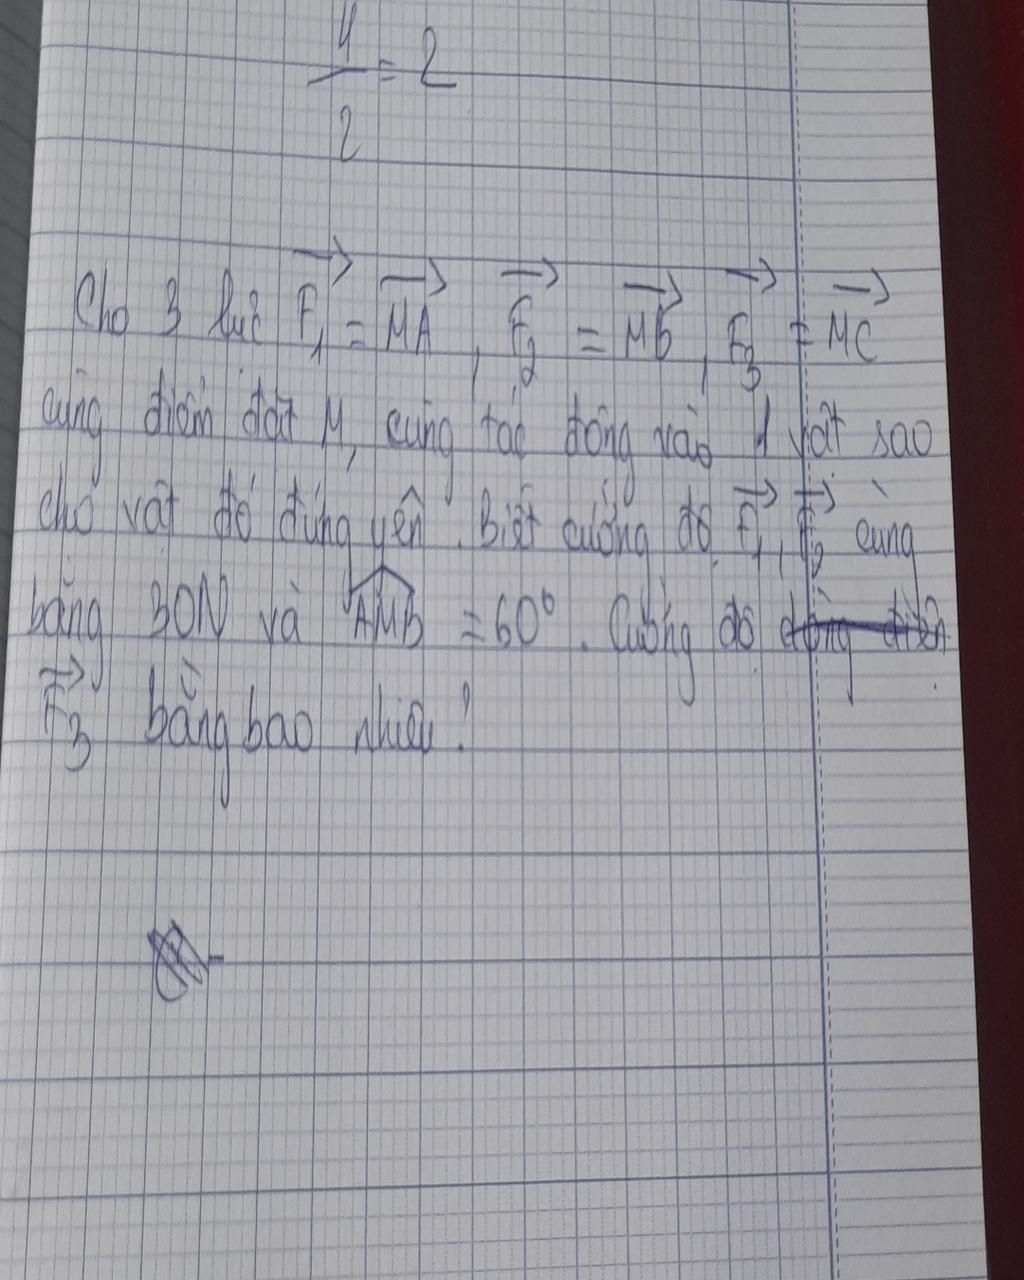 4/2 = 2
Cho 3 lực F₁ = MA, F₂ = MB, F₃ = MC
cùng điểm đặt M, cùng tác động vào 1 vật sao
cho vật đó đứng yên. Biết cường độ F₁, F₂ cùng
bằng 30N và AMB = 60°. Cường độ
F₃ bằng bao nhiêu?